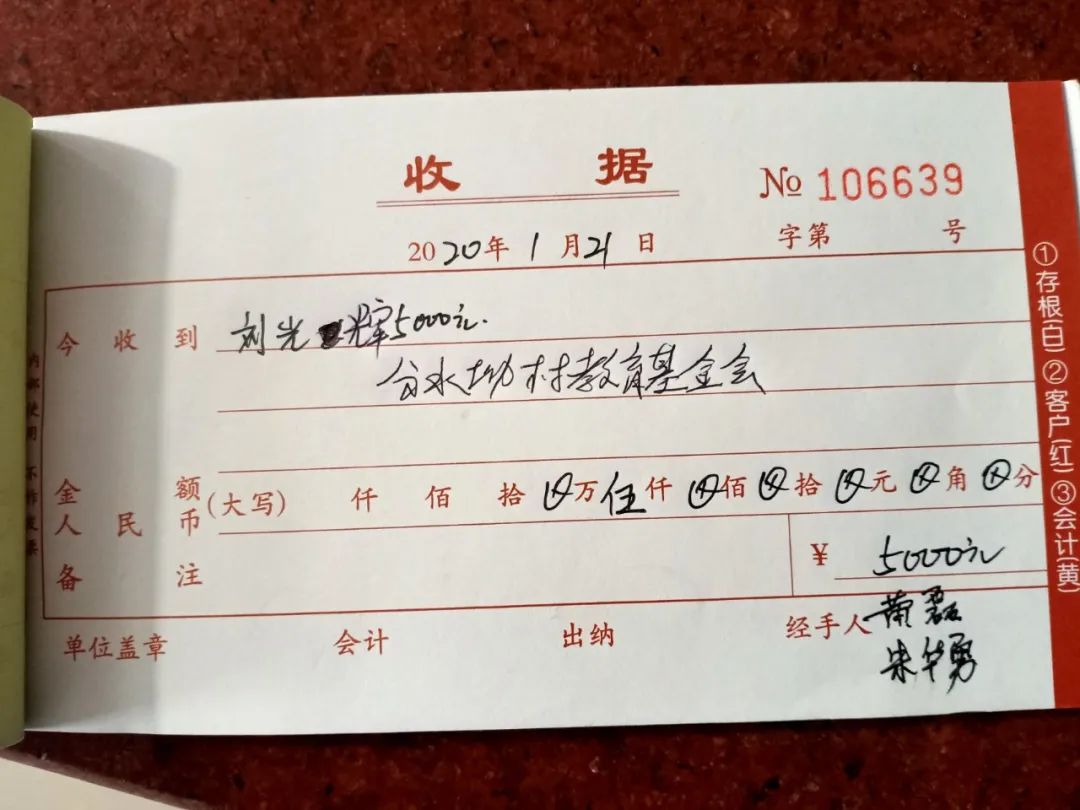 收据
№ 106639
2020年1月21日
字第 号
今收到 刘光辉5000元.
分水坳村教育基金会
金额
人民币
(大写) 仟 佰 拾 ⊗万 伍仟 ⊗佰 ⊗拾 ⊗元 ⊗角 ⊗分
备注
¥ 5000元
单位盖章 会计 出纳 经手人 黄磊
朱华勇
①存根(白)②客户(红)③会计(黄)
内部使用 不作发票